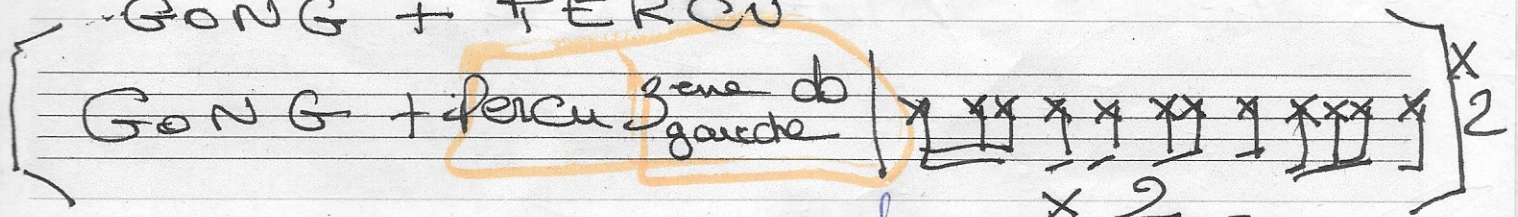 GONG + PERCU
GONG + percu 3eme do gauche x 2
x 2